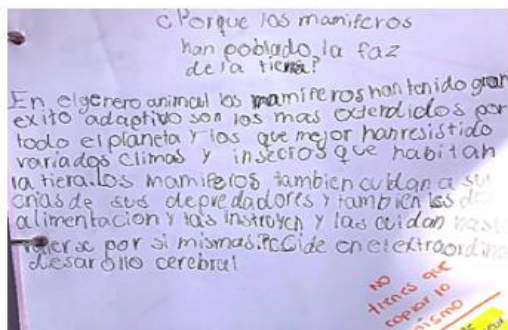 ¿Porque los mamiferos
han poblado la faz
de la tierra?
En el genero animal los mamiferos han tenido gran
exito adaptivo son los mas extendidos por
todo el planeta y los que mejor han resistido
variados climas y insecros que habitan
la tiera. los mamiferos tambien cuidan a sus
crias de sus depredadores y tambien les dan
alimentacion y las instruyen y las cuidan hasta
por si mismas. en el extraordina
desarollo cerebral
NO
tienes que
copiar lo
mismo